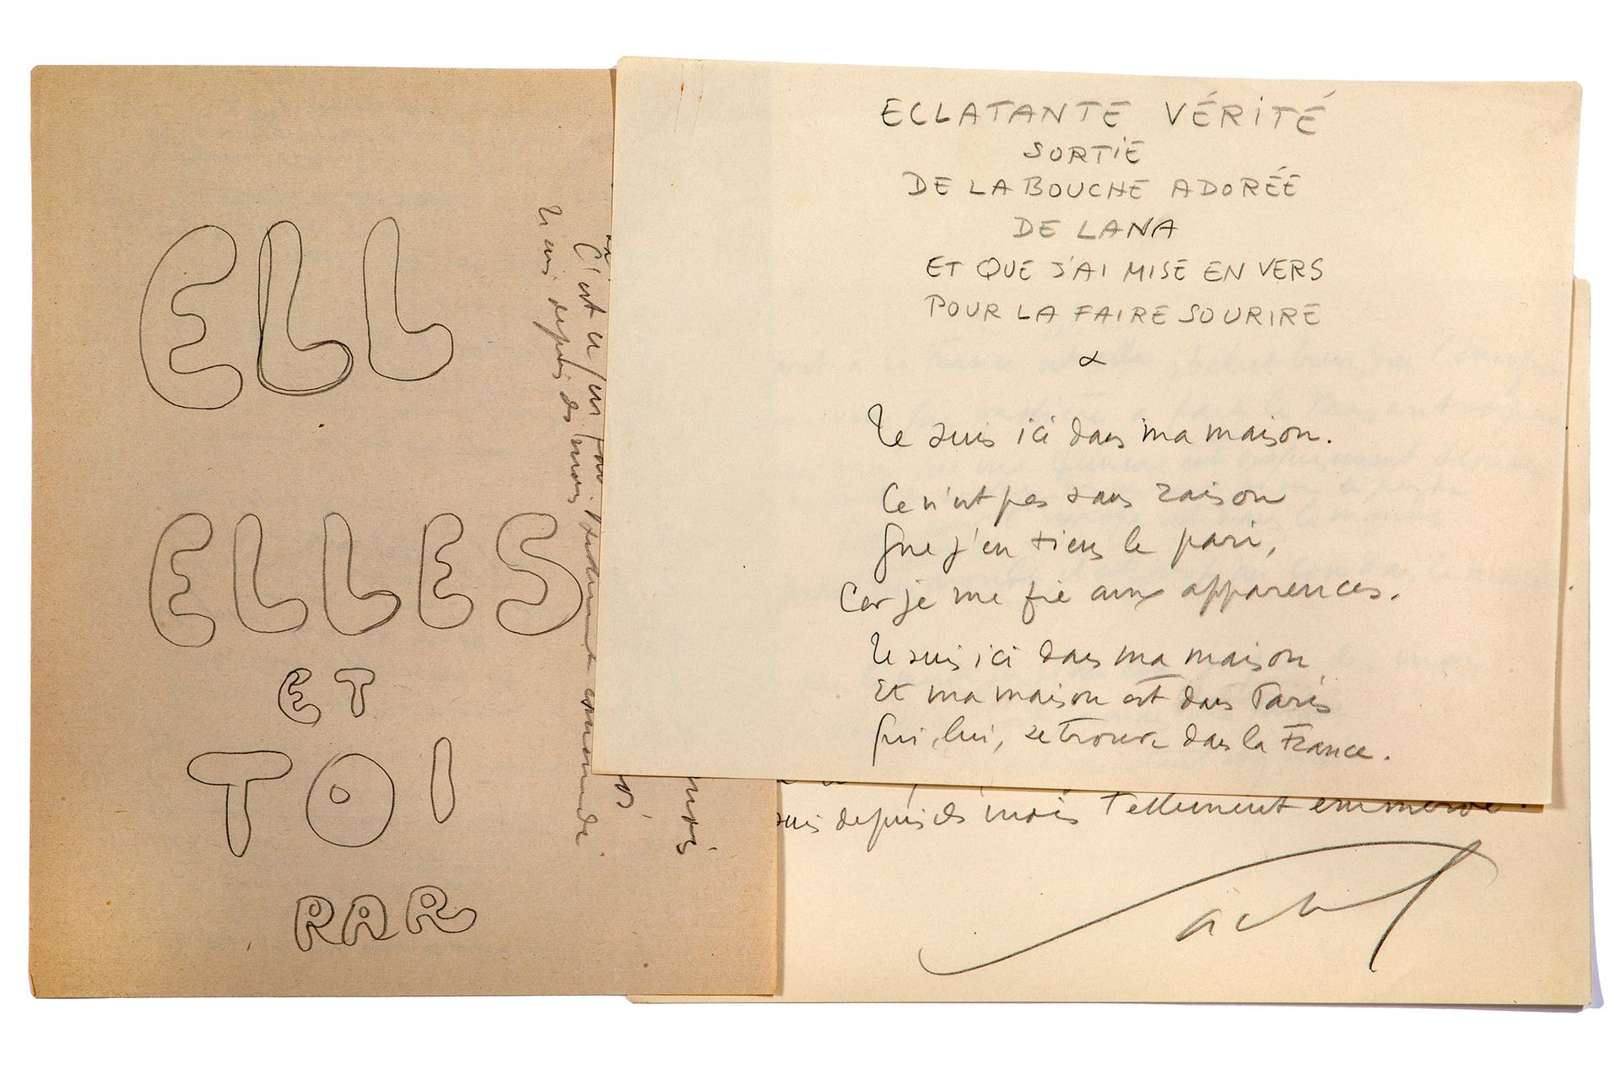 ELL
ELLES
ET
TOI
PAR
Je suis depuis des mois
C'est ce
ECLATANTE VÉRITÉ
SORTIE
DE LA BOUCHE ADORÉE
DE LANA
ET QUE J'AI MISE EN VERS
POUR LA FAIRE SOURIRE
Je suis ici dans ma maison.
Ce n'est pas sans raison
Que j'en tiens le pari,
Car je me fie aux apparences.
Je suis ici dans ma maison
Et ma maison est dans Paris
Qui, lui, se trouve dans la France.
suis depuis des mois tellement emmerdé